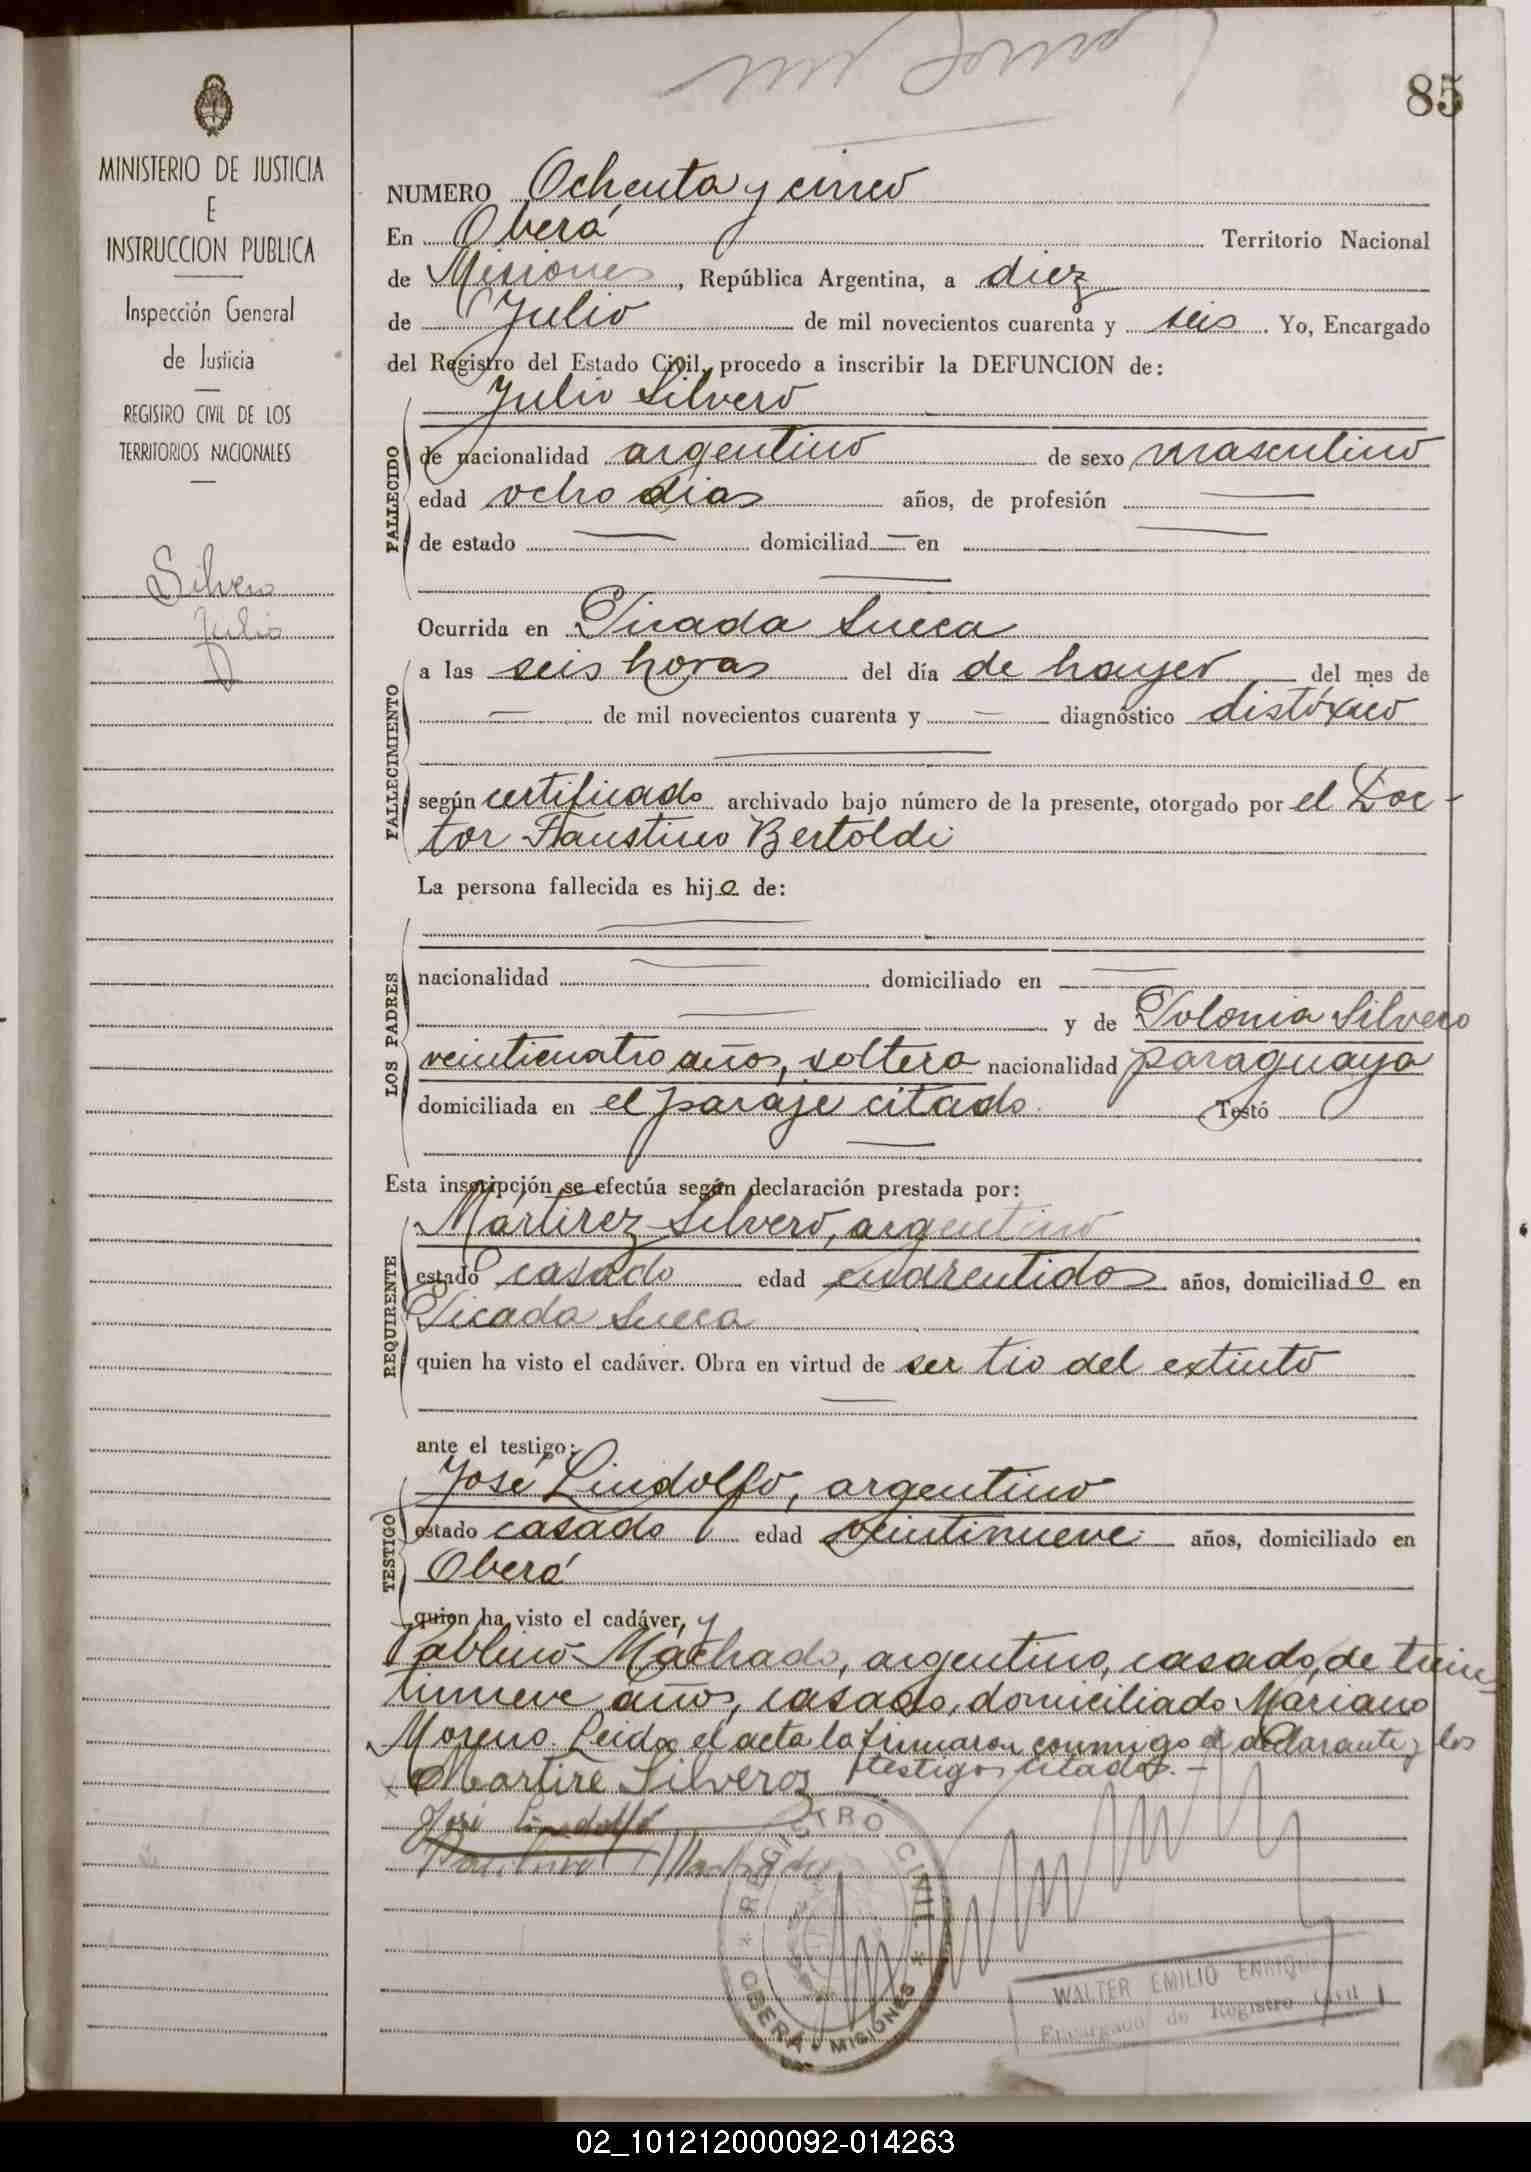 85
MINISTERIO DE JUSTICIA
E
INSTRUCCION PUBLICA
Inspección General
de Justicia
REGISTRO CIVIL DE LOS
TERRITORIOS NACIONALES
Silvero
Julio
NUMERO Ochenta y cinco
En Oberá Territorio Nacional
de Misiones, República Argentina, a diez
de Julio de mil novecientos cuarenta y seis. Yo, Encargado
del Registro del Estado Civil, procedo a inscribir la DEFUNCION de:
Julio Silvero
FALLECIDO
de nacionalidad argentino de sexo masculino
edad ocho dias años, de profesión —
de estado — domiciliad — en —
Ocurrida en Picada Sueca
FALLECIMIENTO
a las seis horas del día de hayer del mes de
— de mil novecientos cuarenta y — diagnóstico distóxico
según certificado archivado bajo número de la presente, otorgado por el Doc-
tor Faustino Bertoldi
La persona fallecida es hijo de:
LOS PADRES
nacionalidad — domiciliado en —
— y de Polonia Silvero
veinticuatro años, soltera nacionalidad paraguaya
domiciliada en el paraje citado. Testó
Esta inscripción se efectúa según declaración prestada por:
REQUIRENTE
Martirez Silvero, argentino
estado casado edad cuarentidos años, domiciliado en
Picada Sueca
quien ha visto el cadáver. Obra en virtud de ser tio del extinto
ante el testigo:
TESTIGO
José Lindolfo, argentino
estado casado edad veintinueve años, domiciliado en
Oberá
quien ha visto el cadáver, y
Pablino Machado, argentino, casado, de trein
tinueve años, casado, domiciliado Mariano
Moreno. Leida el acta la firmaron conmigo el declarante y los
testigos citados. -
Martire Silveroz
José Lindolfo
Machado
REGISTRO CIVIL
OBERA • MISIONES
WALTER EMILIO ENRIQUE
Encargado de Registro Civil
02_101212000092-014263